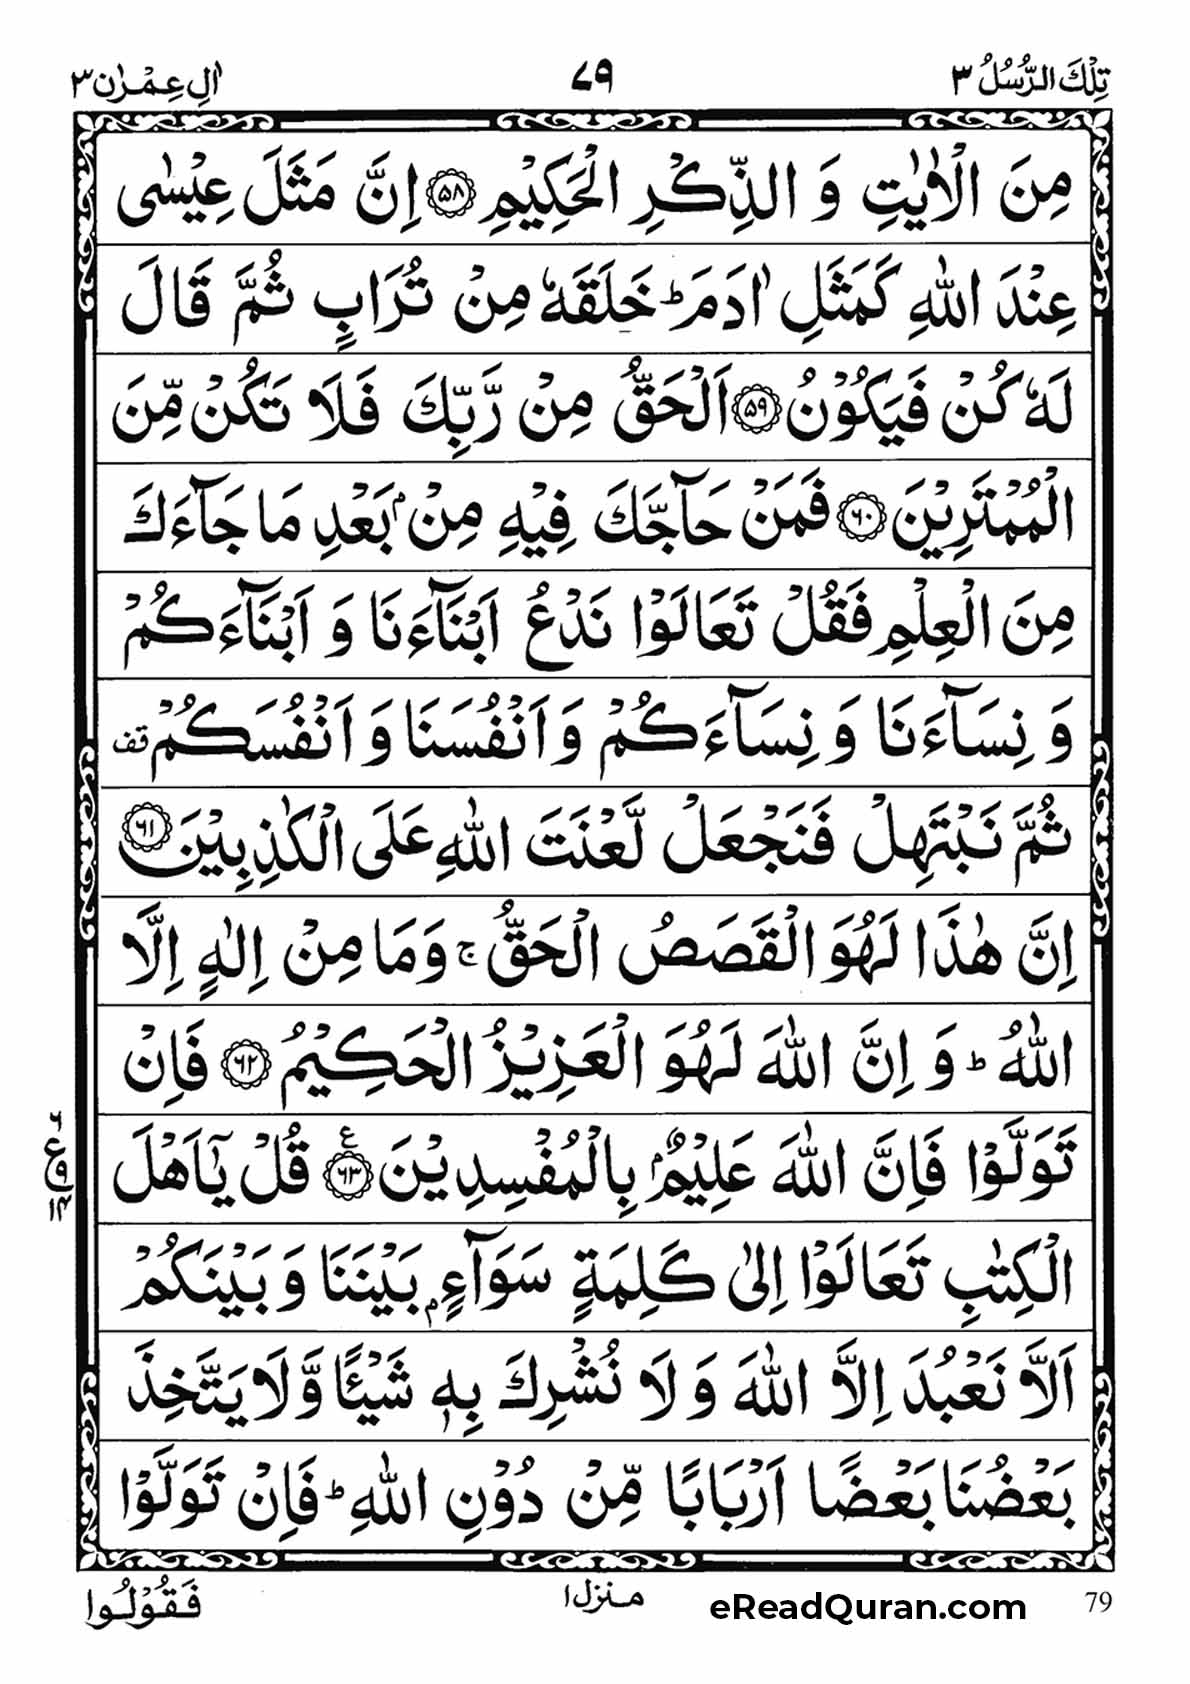 تِلْكَ الرُّسُلُ ٣
٧٩
اٰلِ عِمْرٰن ٣
مِنَ الْاٰیٰتِ وَ الذِّكْرِ الْحَكِیْمِ ﴿۵۸﴾ اِنَّ مَثَلَ عِیْسٰی
عِنْدَ اللّٰهِ كَمَثَلِ اٰدَمَ ؕ خَلَقَهٗ مِنْ تُرَابٍ ثُمَّ قَالَ
لَهٗ كُنْ فَیَكُوْنُ ﴿۵۹﴾ اَلْحَقُّ مِنْ رَّبِّكَ فَلَا تَكُنْ مِّنَ
الْمُمْتَرِیْنَ ﴿۶۰﴾ فَمَنْ حَآجَّكَ فِیْهِ مِنْۢ بَعْدِ مَا جَآءَكَ
مِنَ الْعِلْمِ فَقُلْ تَعَالَوْا نَدْعُ اَبْنَآءَنَا وَ اَبْنَآءَكُمْ
وَ نِسَآءَنَا وَ نِسَآءَكُمْ وَ اَنْفُسَنَا وَ اَنْفُسَكُمْ قف
ثُمَّ نَبْتَهِلْ فَنَجْعَلْ لَّعْنَتَ اللّٰهِ عَلَی الْكٰذِبِیْنَ ﴿۶۱﴾
اِنَّ هٰذَا لَهُوَ الْقَصَصُ الْحَقُّ ۚ وَمَا مِنْ اِلٰهٍ اِلَّا
اللّٰهُ ؕ وَ اِنَّ اللّٰهَ لَهُوَ الْعَزِیْزُ الْحَكِیْمُ ﴿۶۲﴾ فَاِنْ
تَوَلَّوْا فَاِنَّ اللّٰهَ عَلِیْمٌۢ بِالْمُفْسِدِیْنَ ﴿۶۳﴾ ع قُلْ یٰۤاَهْلَ
الْكِتٰبِ تَعَالَوْا اِلٰی كَلِمَةٍ سَوَآءٍۭ بَیْنَنَا وَ بَیْنَكُمْ
اَلَّا نَعْبُدَ اِلَّا اللّٰهَ وَ لَا نُشْرِكَ بِهٖ شَیْـًٔا وَّ لَا یَتَّخِذَ
بَعْضُنَا بَعْضًا اَرْبَابًا مِّنْ دُوْنِ اللّٰهِ ؕ فَاِنْ تَوَلَّوْا
٢
ع ٩
١٤
فَقُوْلُوا
منزل ١
eReadQuran.com
79